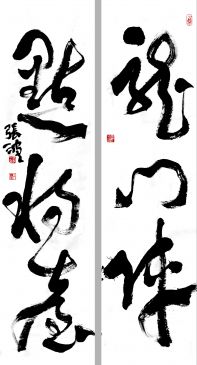 龍门陣
點將臺
張